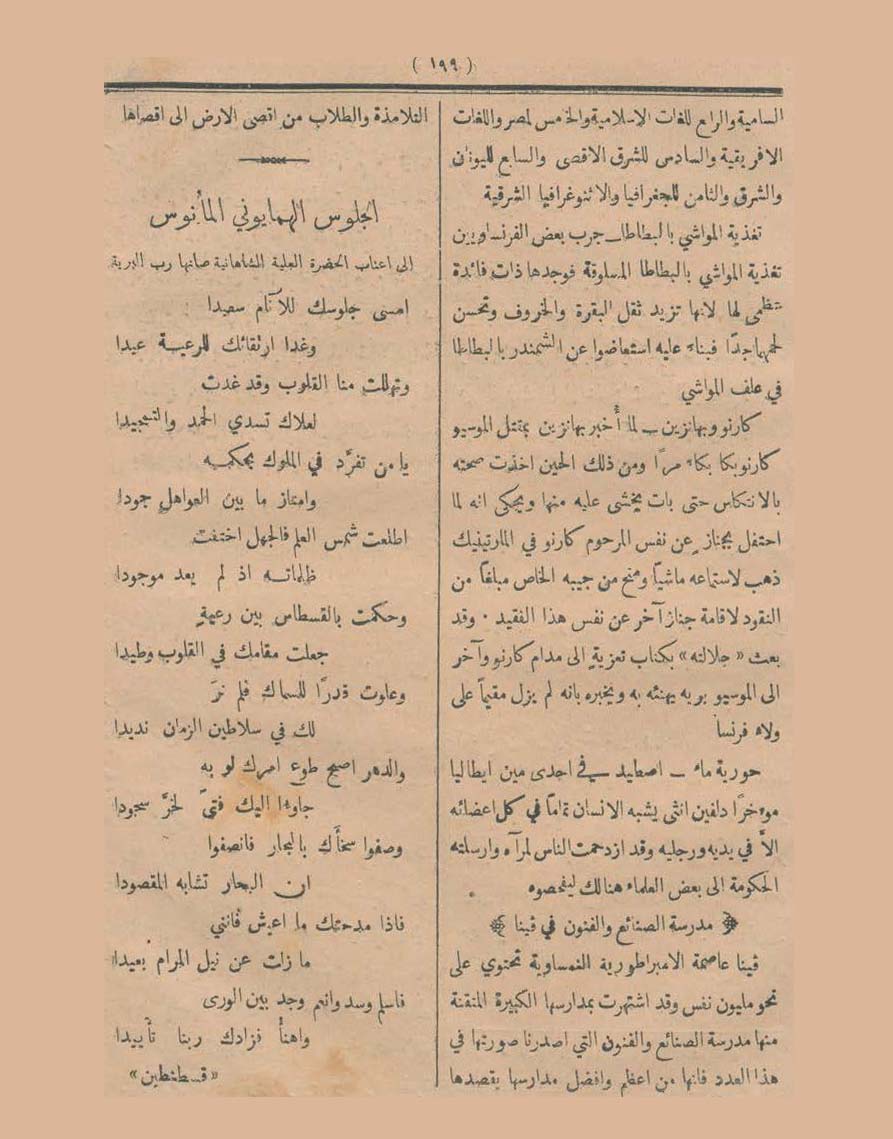 ( ١٩٩ )
السامية والرابع للغات الاسلامية والخامس لمصر واللغات
الافريقية والسادس للشرق الاقصى والسابع لليونان
والشرق والثامن للجغرافيا والاثنوغرافيا الشرقية
تغذية المواشي بالبطاطا ــ جرب بعض الفرنساويين
تغذية المواشي بالبطاطا المسلوقة فوجدها ذات فائدة
عظمى لها لانها تزيد ثقل البقرة والخروف وتحسن
لحمهما جدًا فبناء عليه استعاضوا عن الشمندر بالبطاطا
في علف المواشي
كارنو وبهانزين ــ لما أُخبر بهانزين بمقتل الموسيو
كارنو بكا بكاء مرًا ومن ذلك الحين اخذت صحته
بالانتكاس حتى بات يخشى عليه منها ويحكى انه لما
احتفل بجناز عن نفس المرحوم كارنو في المارتينيك
ذهب لاستماعه ماشيًا ومنح من جيبه الخاص مبلغًا من
النقود لاقامة جناز آخر عن نفس هذا الفقيد ٠ وقد
بعث « جلالته » بكتاب تعزية الى مدام كارنو وآخر
الى الموسيو بريه يهنئه به ويخبره بانه لم يزل مقيمًا على
ولاء فرنسا
حورية ماء ــ اصطيد في احدى مين ايطاليا
موءخرًا دلفين انثى يشبه الانسان تمامًا في كل اعضائه
الاَّ في يديه ورجليه وقد ازدحمت الناس لمرآه وارسلته
الحكومة الى بعض العلماء هنالك ليفحصوه
﴿ مدرسة الصنائع والفنون في ڤينا ﴾
ڤينا عاصمة الامبراطورية النمساوية تحتوي على
نحو مليون نفس وقد اشتهرت بمدارسها الكبيرة المتقنة
منها مدرسة الصنائع والفنون التي اصدرنا صورتها في
هذا العدد فانها من اعظم وافضل مدارسها يقصدها
التلامذة والطلاب من اقصى الارض الى اقصاها
الجلوس الهمايوني المأنوس
الى اعتاب الحضرة العلية الشاهانية صانها رب البرية
امسى جلوسك للأنام سعيدا
وغدا ارتقائك للرعية عيدا
وتهللت منا القلوب وقد غدت
لعلاك تسدي الحمد والتمجيدا
يا من تفرَّد في الملوك بحكمه
وامتاز ما بين العواهل جودا
اطلعت شمس العلم فالجهل اختفت
ظلماته اذ لم يعد موجودا
وحكمت بالقسطاس بين رعية
جعلت مقامك في القلوب وطيدا
وعلوت قدرًا للسماك فلم نرَ
لك في سلاطين الزمان نديدا
والدهر اصبح طوع امرك لو به
جاوءا اليك فتىً لخرَّ سجودا
وصفوا سخأك بالبحار فانصفوا
ان البحار تشابه المقصودا
فاذا مدحتك ما اعيش فانني
ما زلت عن نيل المرام بعيدا
فاسلم وسد وانعم وجد بين الورى
واهنأ فزادك ربنا تأييدا
« قسطنطين »